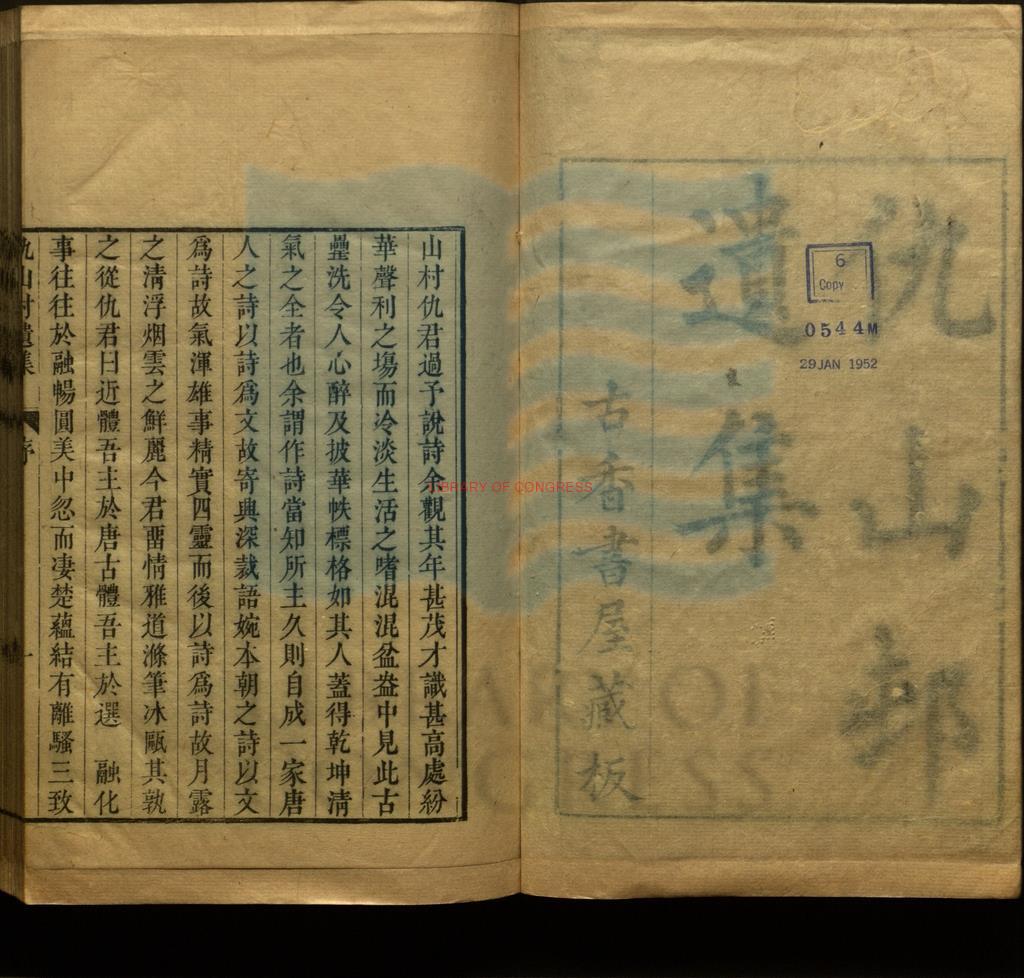 仇山邨
遺集
古香書屋藏板
6
Copy
0544M
29 JAN 1952
LIBRARY OF CONGRESS
山村仇君過予說詩余觀其年甚茂才識甚高處紛
華聲利之塲而冷淡生活之嗜混混盆盎中見此古
罍洗令人心醉及披華帙標格如其人蓋得乾坤清
氣之全者也余謂作詩當知所主久則自成一家唐
人之詩以詩爲文故寄興深裁語婉本朝之詩以文
爲詩故氣渾雄事精實四靈而後以詩爲詩故月露
之清浮烟雲之鮮麗今君畱情雅道滌筆冰甌其孰
之從仇君曰近體吾主於唐古體吾主於選　融化
事往往於融暢圓美中忽而凄楚蘊結有離騷三致
仇山村遺集　序　一